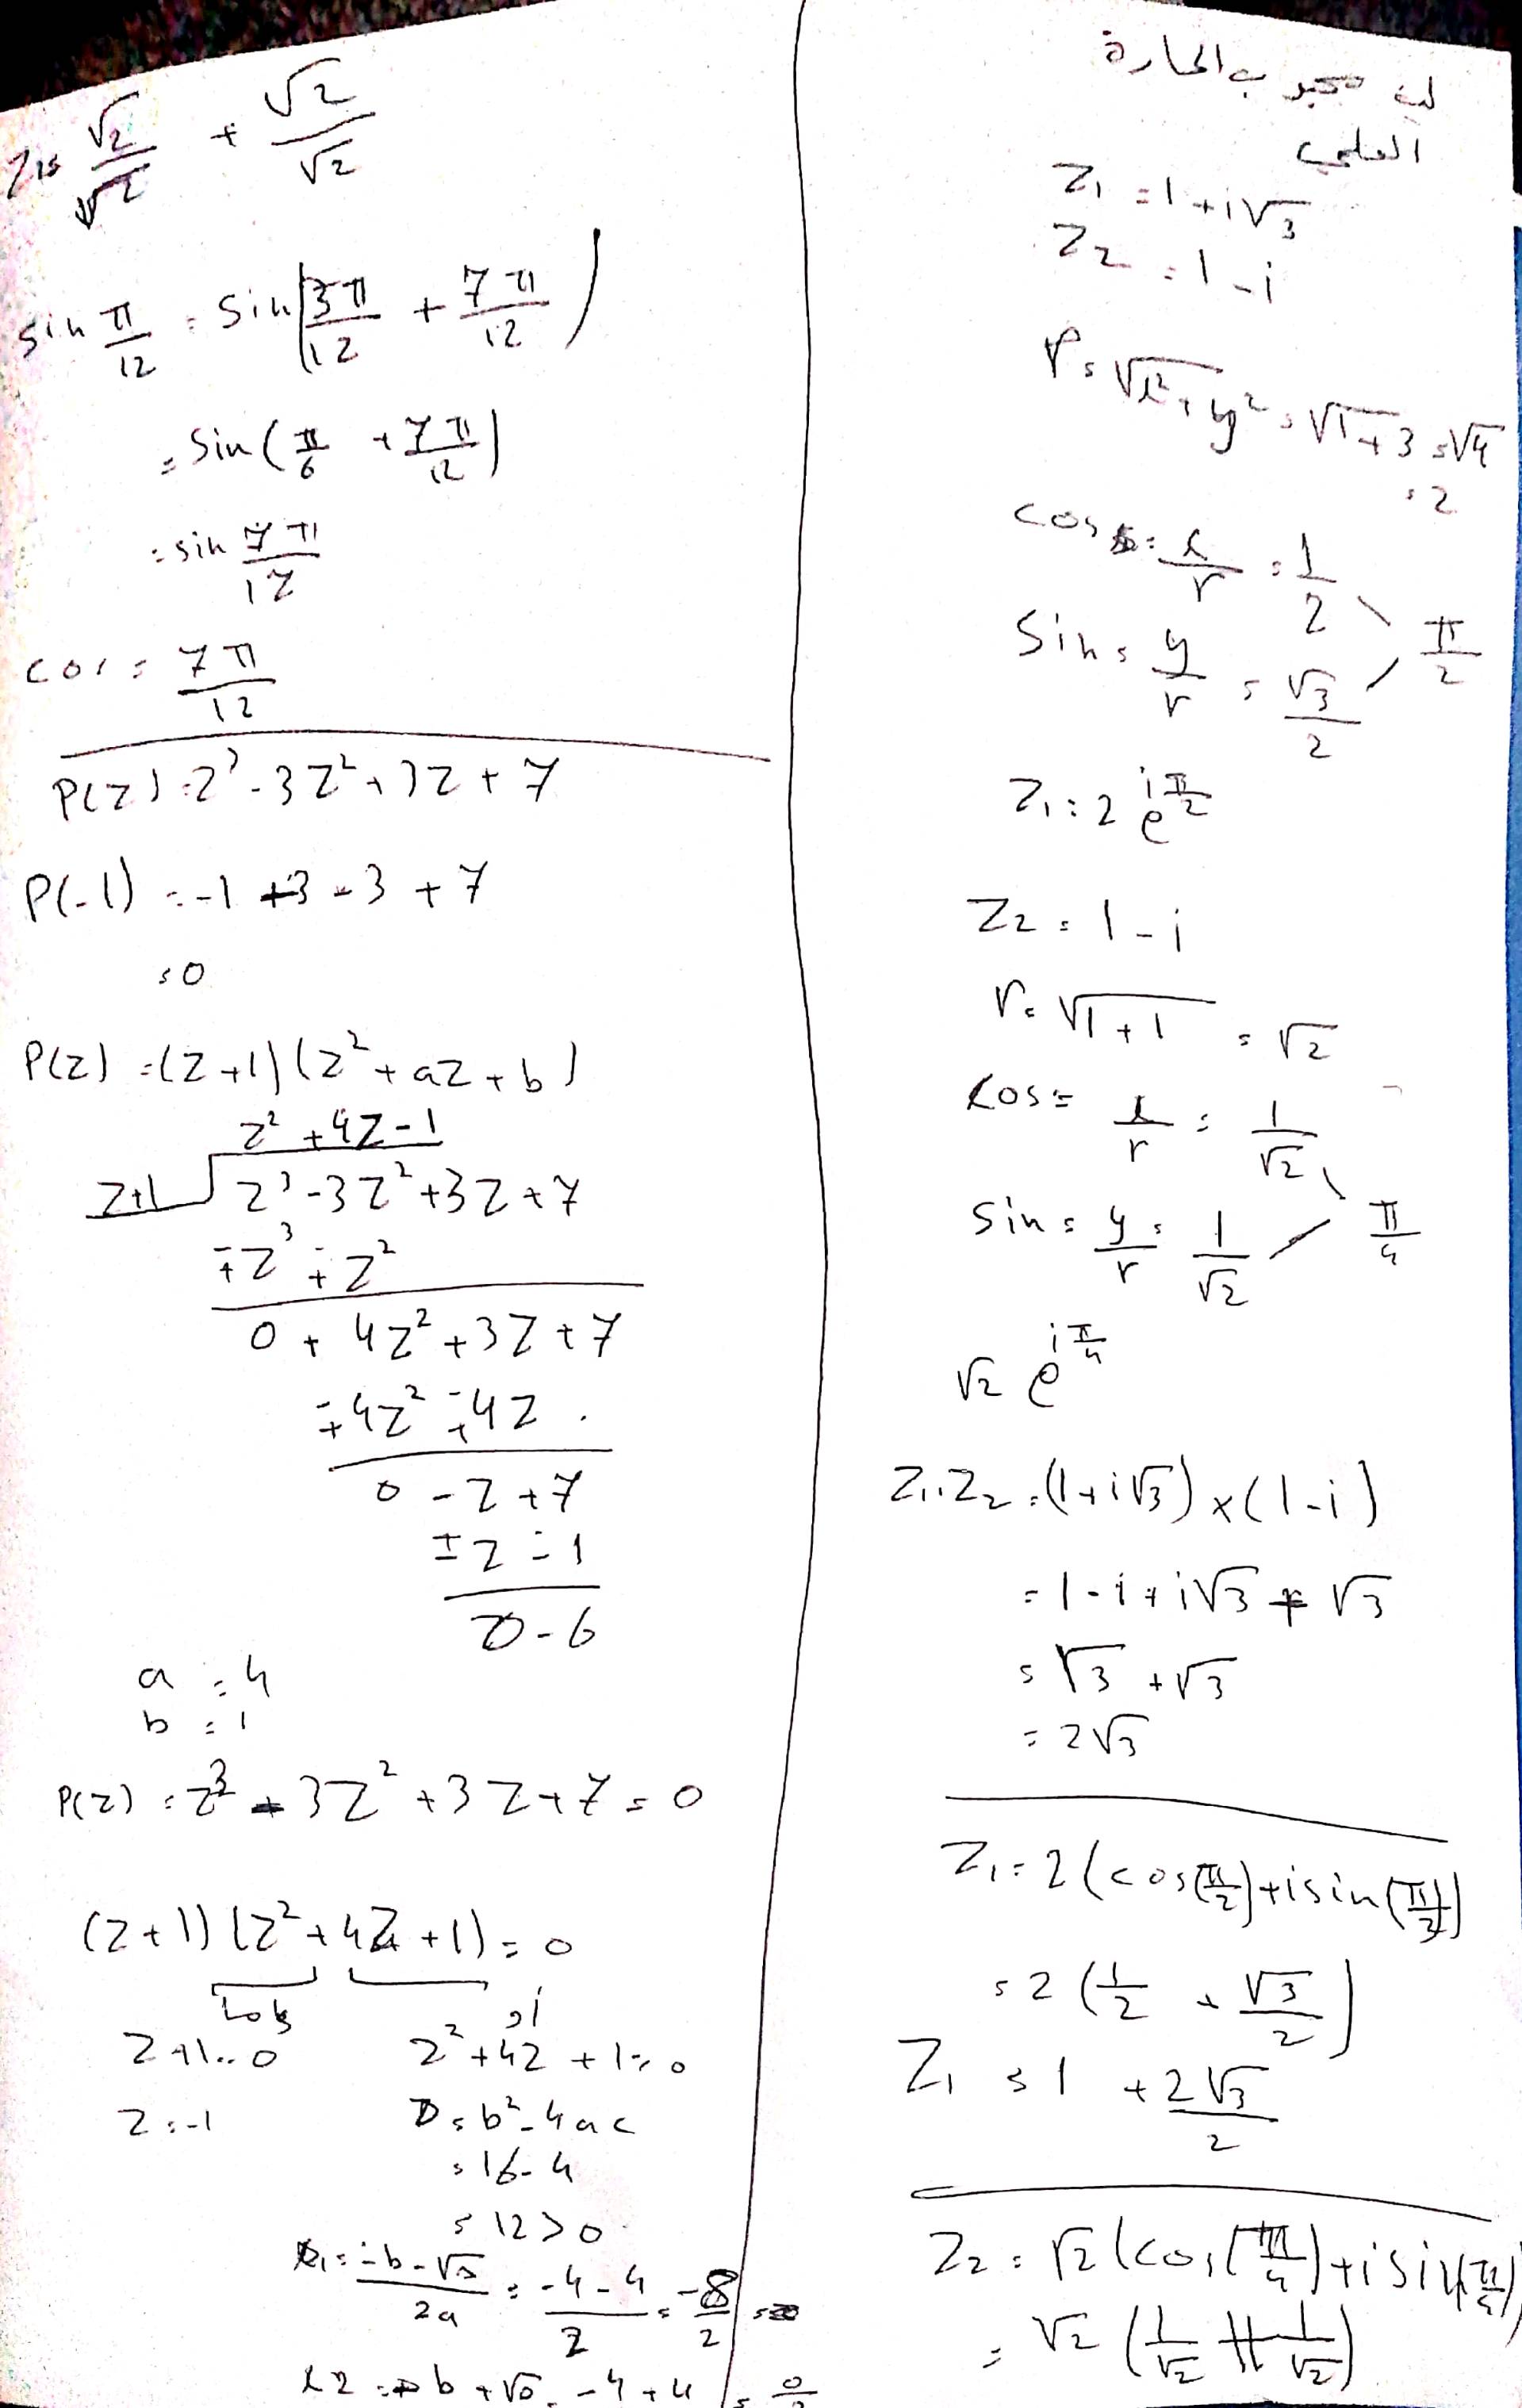 Z = √2/√2 + √2/√2
sin π/12 = sin(3π/12 + 7π/12)
= sin(π/6 + 7π/12)
= sin 7π/12
cos = 7π/12
P(Z) = Z³ - 3Z² + 3Z + 7
P(-1) = -1 + 3 - 3 + 7
= 0
P(Z) = (Z+1)(Z² + aZ + b)
Z² + 4Z - 1
Z+1 Z³ - 3Z² + 3Z + 7
∓Z³ ∓ Z²
0 + 4Z² + 3Z + 7
∓4Z² ∓ 4Z
0 - Z + 7
±Z - 1
0 - 6
a = 4
b = 1
P(Z) = Z³ - 3Z² + 3Z + 7 = 0
(Z+1)(Z² + 4Z + 1) = 0
Z+1 = 0 Z² + 4Z + 1 = 0
Z = -1 D = b² - 4ac
= 16 - 4
= 12 > 0
= -b - √D/2a = -4-4/2 = -8/2
= -b + √D = -4+4 =
بالحارة
العلمي
Z₁ = 1 + i√3
Z₂ = 1 - i
r = √x² + y² = √1+3 = √4
= 2
cos = x/r = 1/2
sin = y/r = √3/2 π/2
Z₁ = 2 e^iπ/2
Z₂ = 1 - i
r = √1+1 = √2
cos = x/r = 1/√2
sin = y/r = 1/√2 π/4
√2 e^iπ/4
Z₁.Z₂ = (1+i√3) × (1-i)
= 1 - i + i√3 + √3
= √3 + √3
= 2√3
Z₁ = 2(cos(π/2) + i sin(π/2))
= 2(1/2 + √3/2)
Z₁ = 1 + 2√3/2
Z₂ = √2(cos(π/4) + i sin(π/4))
= √2(1/√2 + 1/√2)